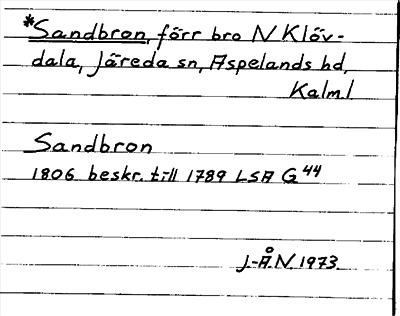 *Sandbron, förr bro N Klöv-
dala, Järeda sn, Aspelands hd,
Kalm.l
Sandbron
1806 beskr. till 1789 LSA G44
J.-Å.N. 1973.